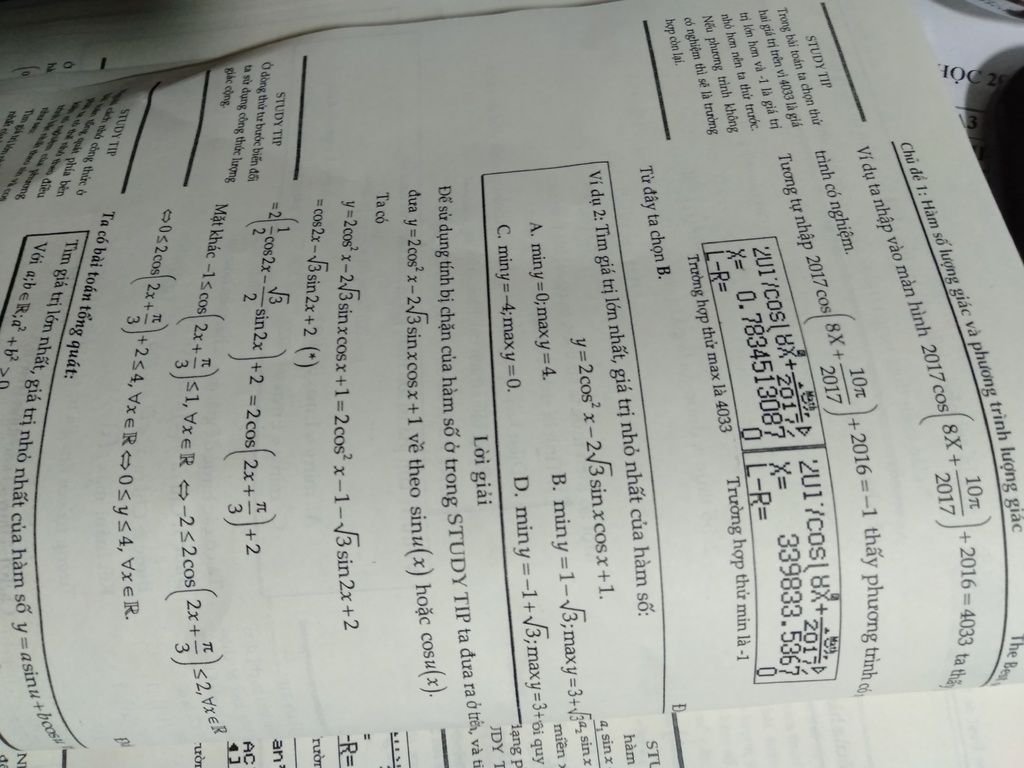 Chủ đề 1: Hàm số lượng giác và phương trình lượng giác
The Best
Ví dụ ta nhập vào màn hình 2017cos(8X + 10π/2017) + 2016 = 4033 ta thấy
trình có nghiệm.
Tương tự nhập 2017cos(8X + 10π/2017) + 2016 = −1 thấy phương trình có
2017cos(8X+2017▷
X= 0.7834513087
L-R= 0
2017cos(8X+2017▷
X= 339833.5367
L-R= 0
Trường hợp thử max là 4033
Trường hợp thử min là -1
Từ đây ta chọn B.
STUDY TIP
Trong bài toán ta chọn thử
hai giá trị trên vì 4033 là giá
trị lớn hơn và -1 là giá trị
nhỏ hơn nên ta thử trước.
Nếu phương trình không
có nghiệm thì sẽ là trường
hợp còn lại.
Ví dụ 2: Tìm giá trị lớn nhất, giá trị nhỏ nhất của hàm số:
y = 2cos² x − 2√3 sin x cos x + 1.
A. min y = 0; max y = 4.
B. min y = 1 − √3; max y = 3 + √3
C. min y = −4; max y = 0.
D. min y = −1 + √3; max y = 3 +
Lời giải
Để sử dụng tính bị chặn của hàm số ở trong STUDY TIP ta đưa ra ở trên, và
đưa y = 2cos² x − 2√3 sin x cos x + 1 về theo sin u(x) hoặc cos u(x).
Ta có
y = 2cos² x − 2√3 sin x cos x + 1 = 2cos² x − 1 − √3 sin 2x + 2
= cos 2x − √3 sin 2x + 2 (*)
= 2(1/2 cos 2x − √3/2 sin 2x) + 2 = 2cos(2x + π/3) + 2
Mặt khác −1 ≤ cos(2x + π/3) ≤ 1, ∀x ∈ ℝ ⇔ −2 ≤ 2cos(2x + π/3) ≤ 2, ∀x ∈ ℝ
⇔ 0 ≤ 2cos(2x + π/3) + 2 ≤ 4, ∀x ∈ ℝ ⇔ 0 ≤ y ≤ 4, ∀x ∈ ℝ.
STUDY TIP
Ở dòng thứ tư bước biến đổi
ta sử dụng công thức lượng
giác cộng.
Ta có bài toán tổng quát:
Tìm giá trị lớn nhất, giá trị nhỏ nhất của hàm số y = a sin u + b cos u
Với a; b ∈ ℝ; a² + b² > 0
STUDY TIP
STU
hàm